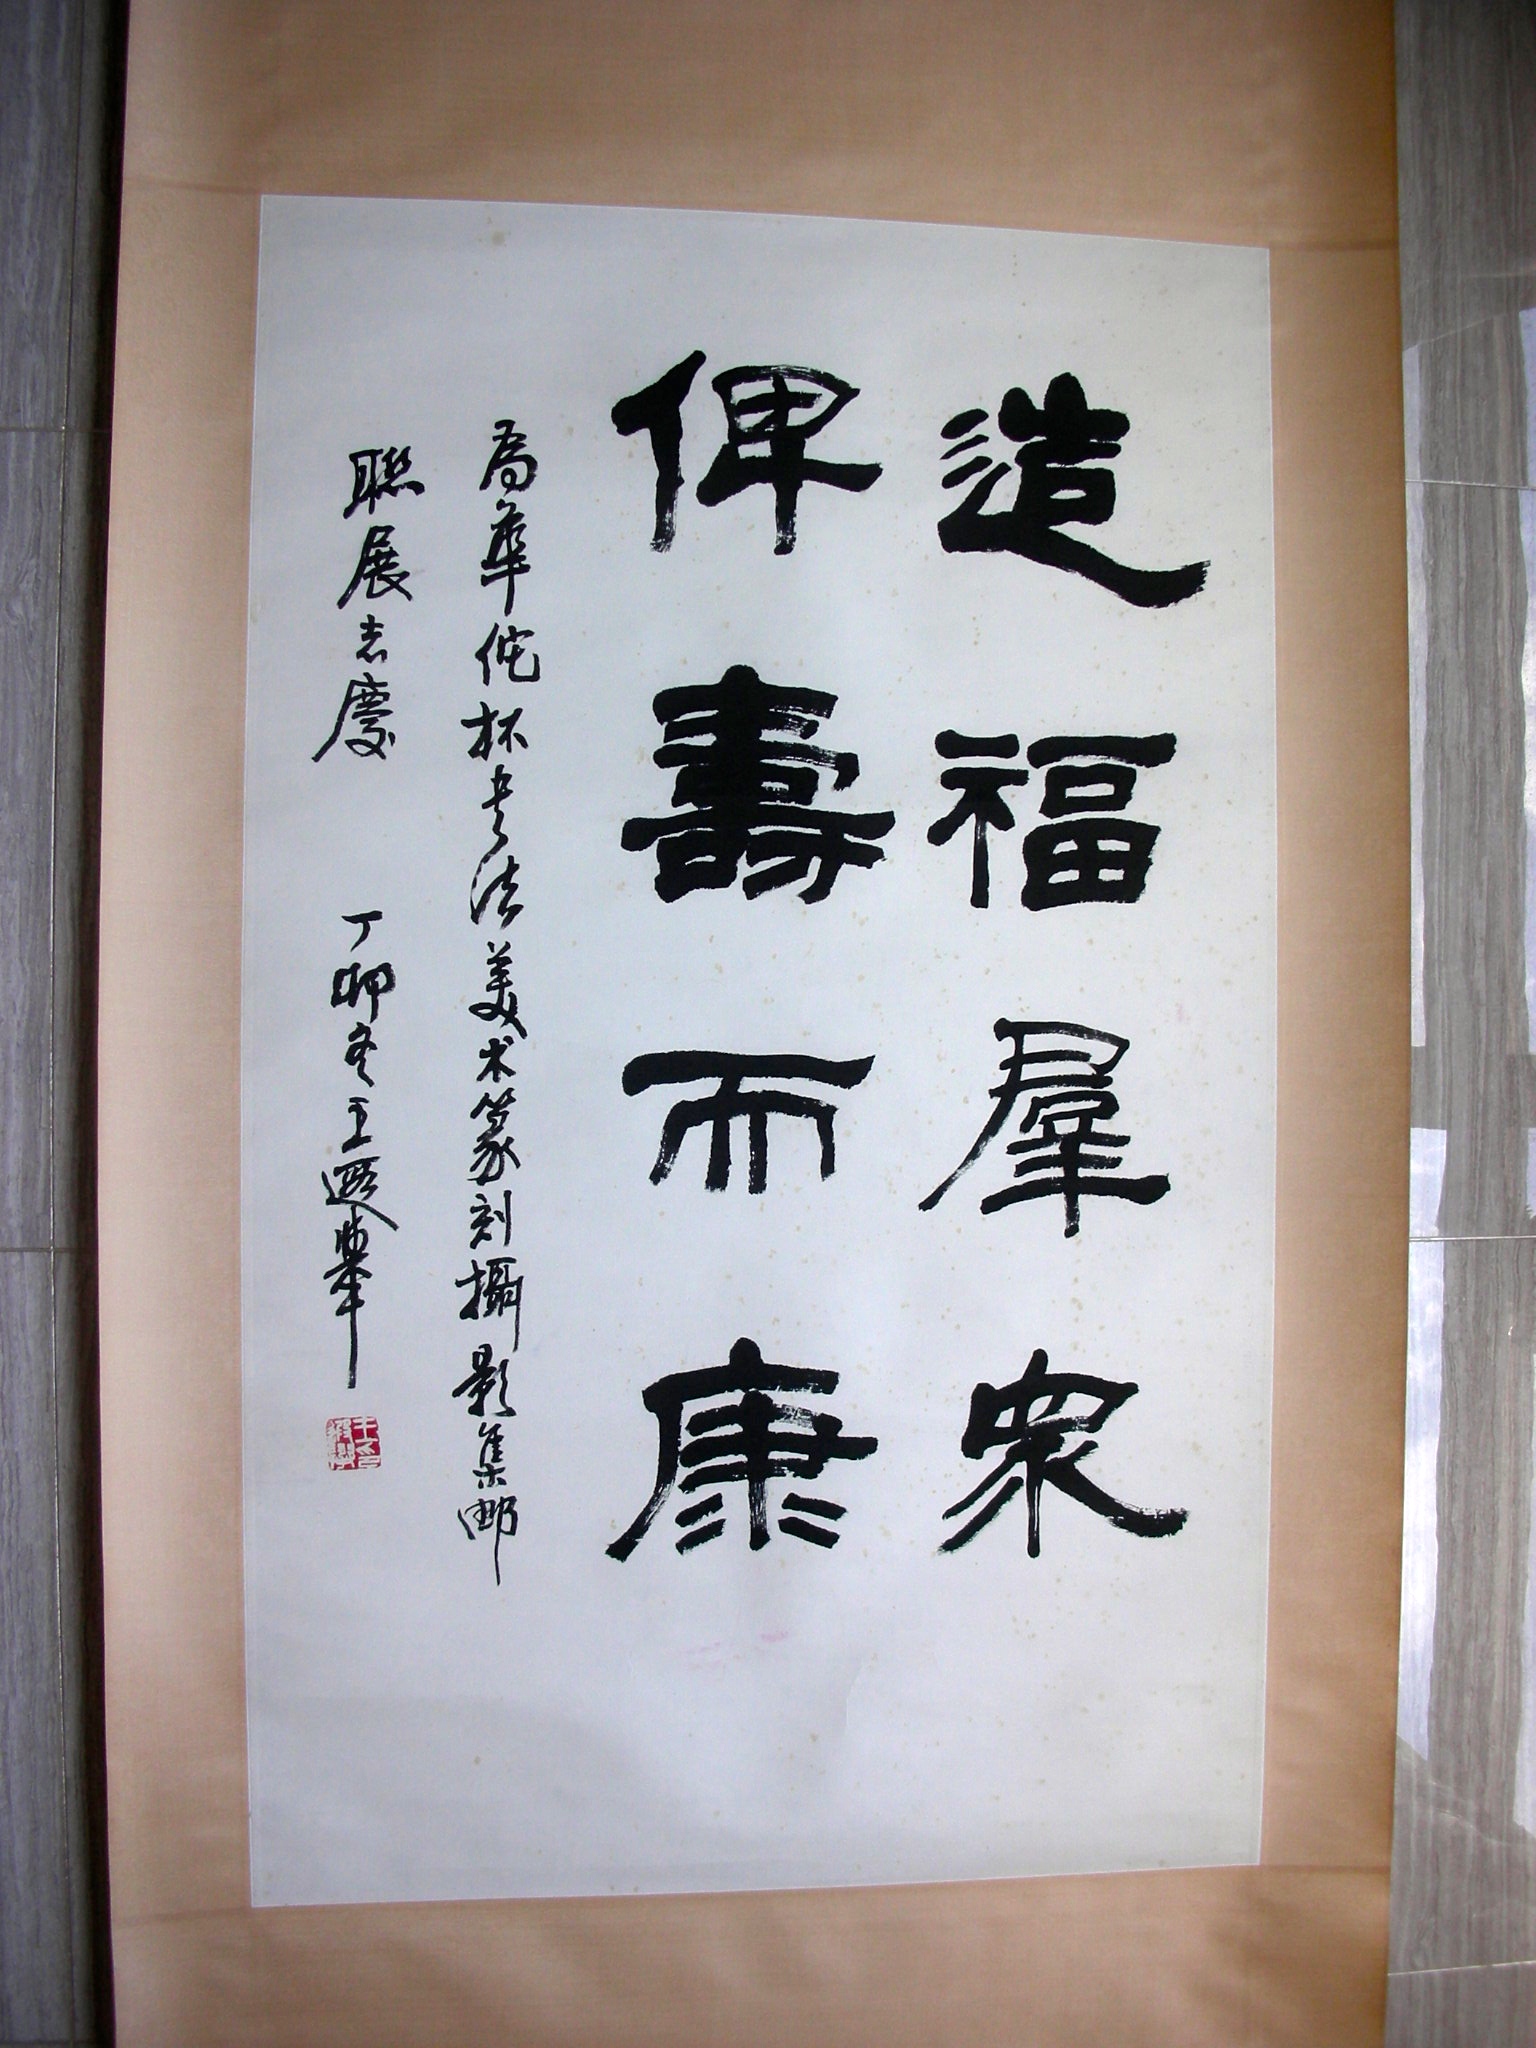 造福羣眾
俾壽而康
為華佗杯书法美术篆刻攝影集邮
聯展志慶
丁卯冬王遐舉